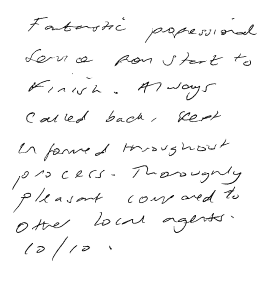 Fantastic professional
Service from start to
Finish. Always
called back, kept
informed throughout
process. Thoroughly
pleasant compared to
other local agents.
10/10.